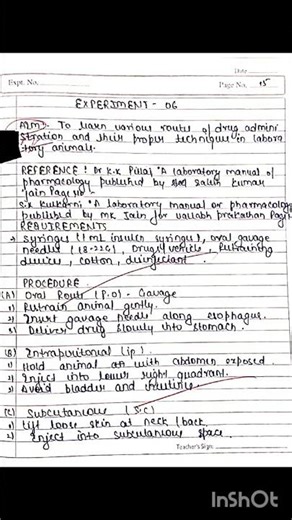 Date
Expt. No.
Page No. 15
EXPERIMENT - 06
AIM :- To learn various routes of drug admini
stration and their proper technique in labora
tory animals.
REFERENCE : Dr K.K Pillai "A laboratory manual of
pharmacology published by Salur Kumar
Jain Page No -
S.K Kulkarni "A laboratory manual or pharmacology
published by M.K Jain for vallabh prakashan Page
REQUIREMENTS
→ Syringes (1 mL insulin syringe), oral gavage
needles (18-22G), Drug/vehicle, Restraining
device, cotton, disinfectant.
PROCEDURE
(A) Oral Route (P.O) - Gavage
1) Restrain animal gently.
2) Insert gavage needle along esophagus.
3) Deliver drug slowly into stomach.
(B) Intraperitonial (i.p).
1) Hold animal with abdomen exposed.
2) Inject into lower right quadrant.
3) Avoid bladder and intestine.
(C) Subcutaneous (S.C)
1) Lift loose skin at neck / back.
2) Inject into subcutaneous space.
Teacher's Sign.
InShOt